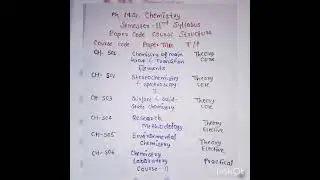 M.Sc. Chemistry
Semester-IInd Syllabus
Paper Code Course Structure
Course code Paper Title T/P
Chemistry of main Theory
Group & Transition Core
Elements
Stereochemistry Theory
& Spectroscopy Core
CH-503 Surface & Solid- Theory
State Chemistry Core
CH-504 Research Theory
Methodology Elective
CH-505 Environmental Theory
Chemistry Elective
Chemistry Practical
Laboratory
Course-II